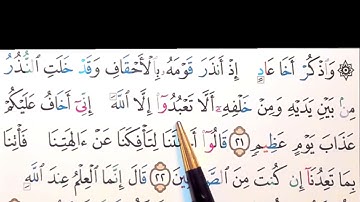 ۞ وَٱذْكُرْ أَخَا عَادٍ إِذْ أَنذَرَ قَوْمَهُۥ بِٱلْأَحْقَافِ وَقَدْ خَلَتِ ٱلنُّذُرُ
مِنۢ بَيْنِ يَدَيْهِ وَمِنْ خَلْفِهِۦٓ أَلَّا تَعْبُدُوٓا۟ إِلَّا ٱللَّهَ إِنِّىٓ أَخَافُ عَلَيْكُمْ
عَذَابَ يَوْمٍ عَظِيمٍ ٢١ قَالُوٓا۟ لِتَأْفِكَنَا عَنْ ءَالِهَتِنَا فَأْتِنَا
بِمَا تَعِدُنَآ إِن كُنتَ مِنَ ٢٢ قَالَ إِنَّمَا ٱلْعِلْمُ عِندَ ٱللَّهِ